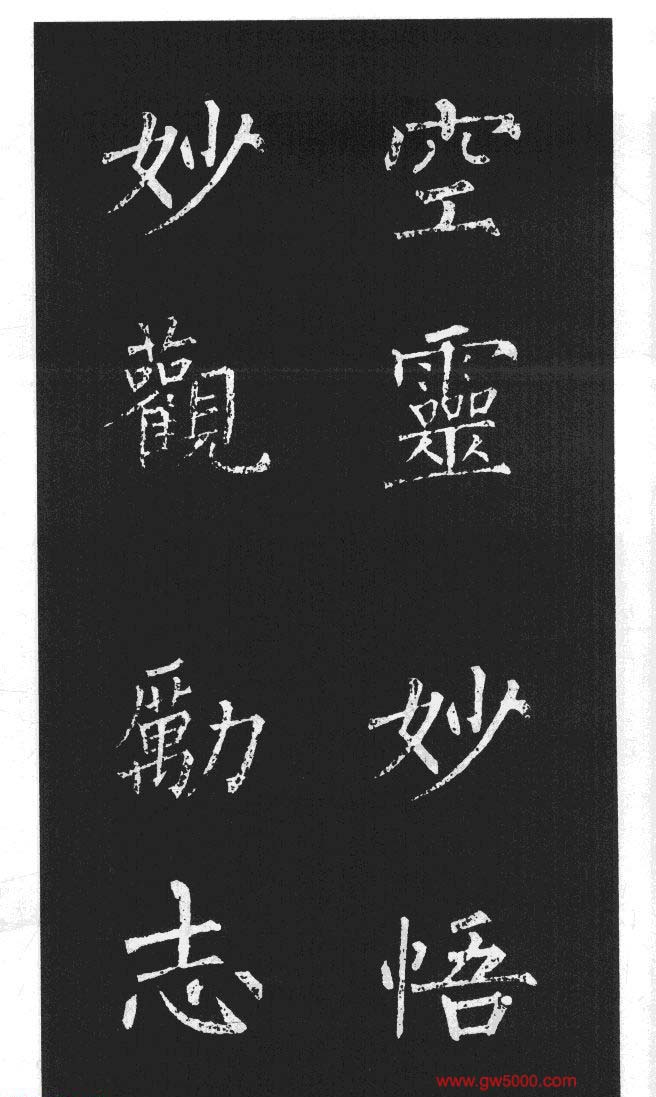 空靈妙悟
妙觀勵志
www.gw5000.com